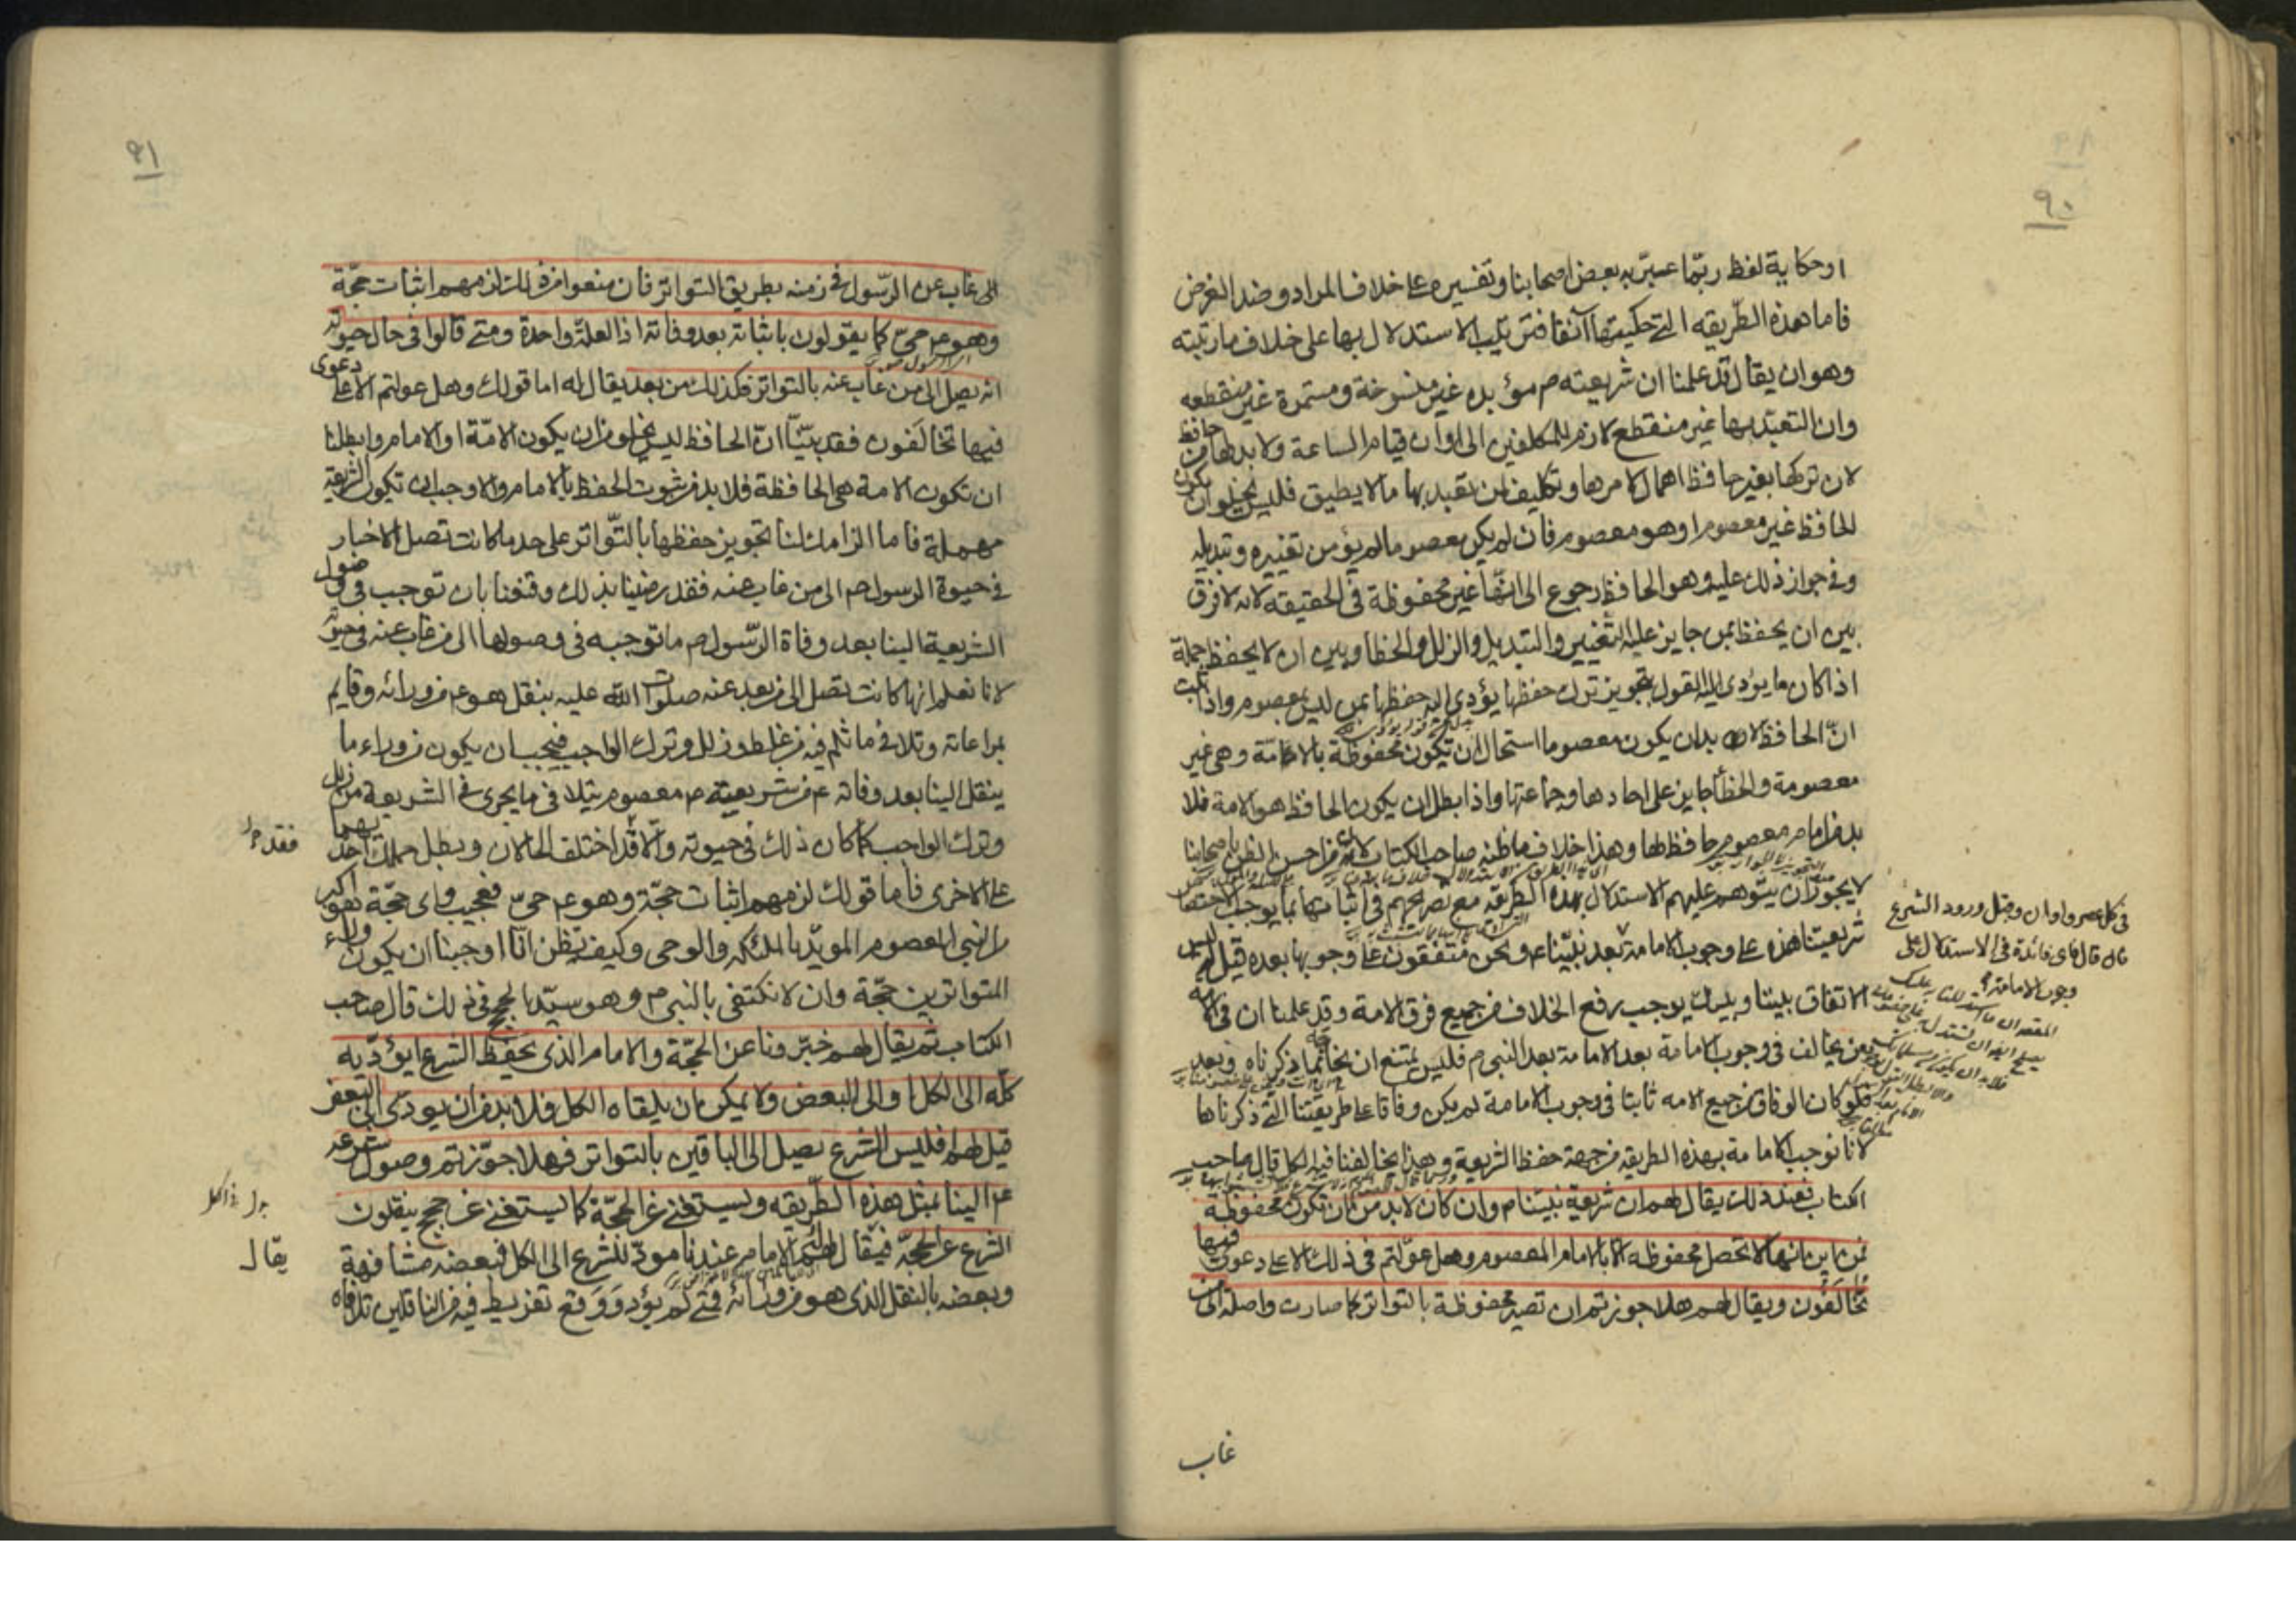 ٩٠
او حكاية لفظ ربّما عبّر به بعض اصحابنا وتفسيره على خلاف المراد وضد الغرض
فاما هذه الطّريقه التي حكيتها آنفا فترتيب الاستدلال بها على خلاف ما رتبته
وهو ان يقال قد علمنا ان شريعته ص مؤبده غير منسوخة ومستمرة غير منقطعه
وان التعبّد بها غير منقطع لازم للمكلفين الى اوان قيام الساعة ولا بد لها من حافظ
لان تركها بغير حافظ اهمال لامرها وتكليف لمن تعبد بها ما لا يطيق فليس يخلو ان يكون
الحافظ غير معصوم او هو معصوم فان لم يكن معصوما لم يؤمن تغييره وتبديله
وفي جواز ذلك عليه وهو الحافظ رجوع الى انها غير محفوظة في الحقيقه لانه لا فرق
بين ان يحفظ بمن جايز عليه التغيير والتبديل والزلل والخطأ وبين ان لا يحفظ جملة
اذا كان ما يؤدي اليه القول بتجويز ترك حفظها يؤدي اليه حفظها بمن ليس بمعصوم واذا ثبت
انّ الحافظ لا بد ان يكون معصوما استحال ان تكون محفوظة بالامّة وهي غير
معصومة والخطأ جايز على احادها وجماعتها واذا بطل ان يكون الحافظ هو الامة فلا
بد من امام معصوم حافظ لها وهذا خلاف ما ظنه صاحب الكتاب لان من احسن الظن باصحابنا
لا يجوز ان يتوهم عليهم الاستدلال بهذه الطريقه مع تصريحهم في اثباتها بما يوجب الاختصاص
شريعتنا هذه على وجوب الامامة بعد نبيّنا ع ونحن متفقون على وجوبها بعده قيل له ليس
الاتفاق بيننا وبينك يوجب رفع الخلاف من جميع فرق الامة وقد علمنا ان في الامه
من يخالف في وجوب الامامة بعد النبي ص فليس يمتنع ان نحاجه بما ذكرناه وبعد
فلو كان الوفاق من جميع الامه ثابتا في وجوب الامامة لم يكن وفاقا على طريقتنا التي ذكرناها
لانا نوجب الامامة بهذه الطريقه من جهة حفظ الشريعة وهذا يخالفنا فيه الكل قال صاحب
الكتاب فعند ذلك يقال لهم ان شريعة نبيّنا ص وان كان لا بد من ان تكون محفوظة
فمن اين بانها لا تحصل محفوظه الا بالامام المعصوم وهل عوّلتم في ذلك الا على دعوى فيها
تخالَفُون ويقال لهم هلا جوزتم ان تصير محفوظة بالتواتر كما صارت واصلة الى من
في كل عصر واوان وقبل ورود الشرع
فان قال فاي فائدة في الاستدلال على
وجوب الامامة
غاب
٩١
الى غاب عن الرّسول في زمنه بطريق التواتر فان منعوا من ذلك لزمهم اثبات حجّة
وهو ع حيّ كما يقولون باثباته بعد وفاته اذ العلّة واحدة ومتى قالوا في حال حيوته
انه يصل الى من غاب عنه بالتواتر فكذلك من بعد يقال له اما قولك وهل عولتم الا على دعوى
فيها تخالَفون فقد بيّنّا انّ الحافظ ليس يخلو من ان يكون الامّة او الامام وابطلنا
ان تكون الامة هي الحافظة فلا بد من ثبوت الحفظ بالامام والا وجب ان تكون الشريعة
مهملة فاما الزامك لنا تجويز حفظها بالتّواتر على حد ما كانت تصل الاخبار
في حيوة الرسول ص الى من غاب عنه فقد رضينا بذلك وقنعنا بان توجب في وصول
الشريعة الينا بعد وفاة الرّسول ص ما توجبه في وصولها الى من غاب عنه في حيوته
لانا نعلم انها كانت تصل الى من بعد عنه صلوات الله عليه بنقل هو ع من ورائه وقايم
بمراعاته وتلافي ما ثلم فيه من غلط وزلل وترك الواجب فيجب ان يكون من وراء ما
ينقل الينا بعد وفاته ع من شريعته ص معصوم يتلافى ما يجرى في الشريعة من زلل
وترك الواجب كما كان ذلك في حيوته والّا فقد اختلف الحالان وبطل حملك احديهما
على الاخرى فاما قولك لزمهم اثبات حجّة وهو ع حيّ فعجيب واى حجّة هو اكبر
من النبي المعصوم المويّد بالملئكه والوحى وكيف تظن انّا اوجبنا ان يكون وراء
المتواترين حجّة وان لا نكتفي بالنبي ص وهو سيّد الحجج في ذلك قال صاحب
الكتاب ثم يقال لهم خبّرونا عن الحجّة والامام الذى يحفظ الشرع ايؤدّيه
كلّه الى الكل او الى البعض ولا يمكن ان يلقاه الكل فلا بد من ان يودى الى البعض
قيل لهم افليس الشرع يصل الى الباقين بالتواتر فهلا جوّزتم وصول شرعه
ع الينا بمثل هذه الطّريقه ويستغنى عن الحجّة كما يستغنى عن حجج ينقلون
الشرع عن الحجّة فيقال لهم الامام عندنا مودّ للشرع الى الكل فبعضه مشافهة
وبعضه بالنقل الذى هو من ورائه فمتى لم يؤد ووقع تفريط فيه من الناقلين تلافاه
فقد
يقال